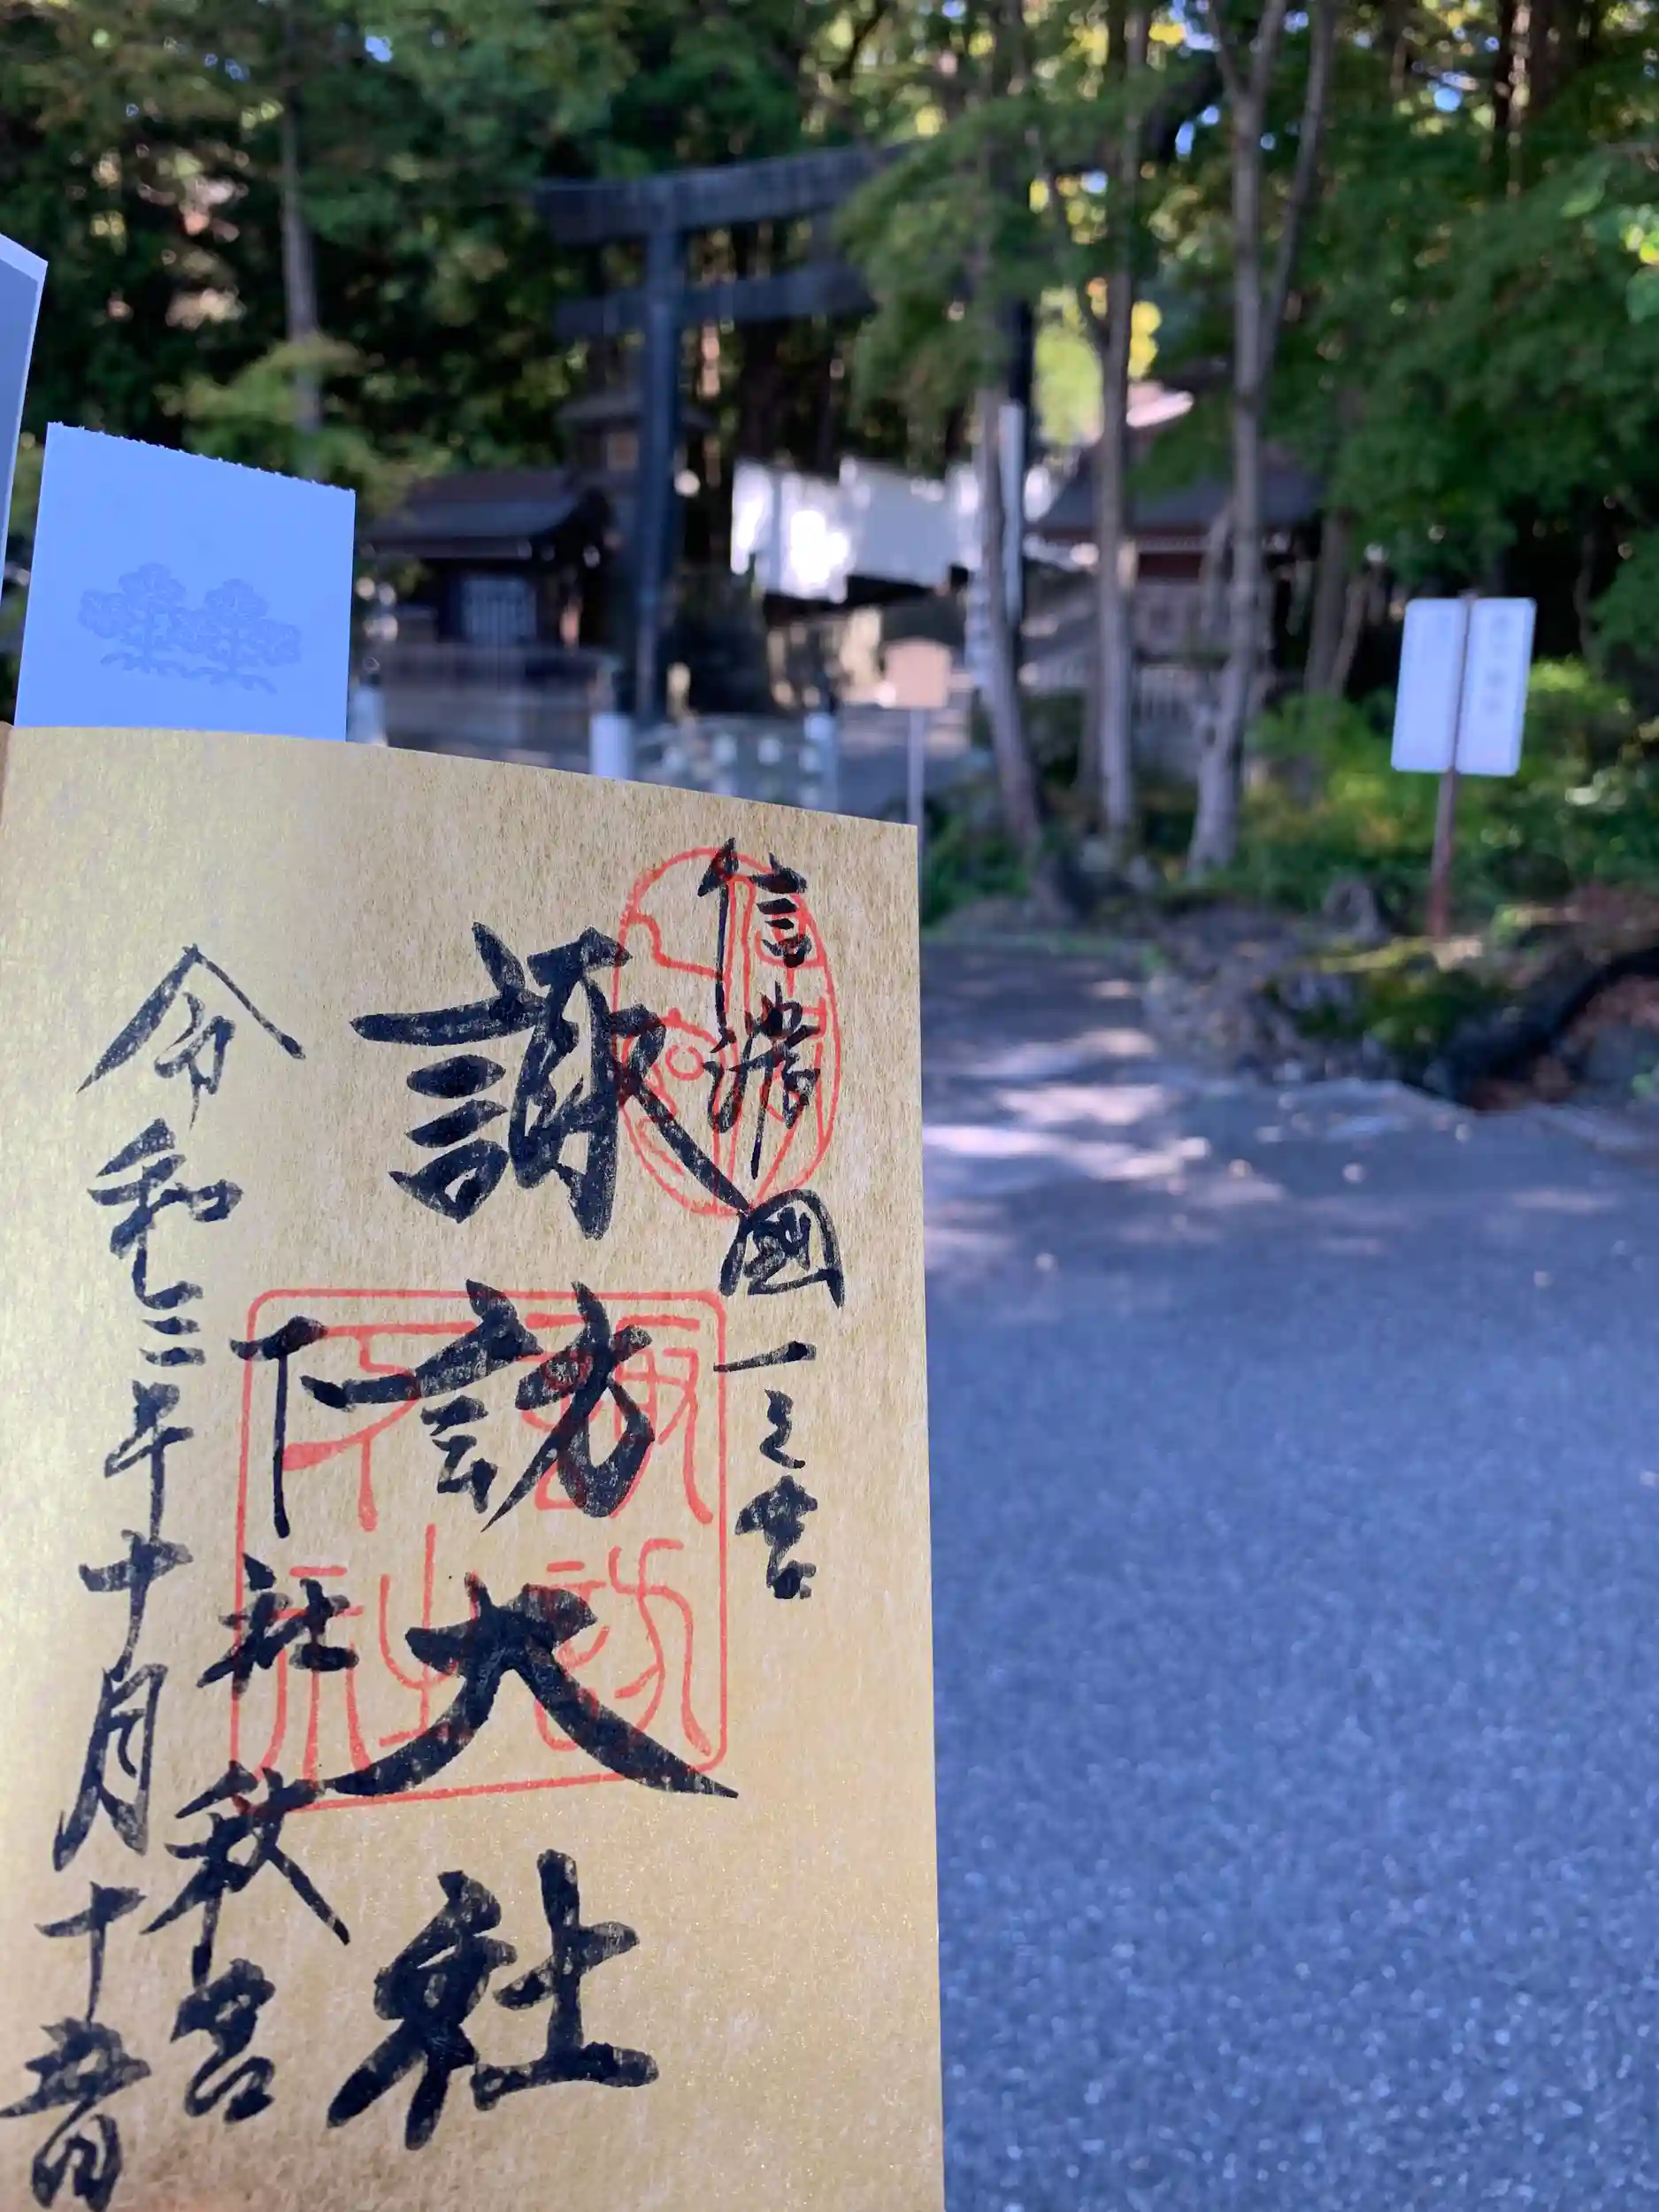 信濃國一之宮
諏訪大社
下社秋宮
令和三年十月十五日
諏訪
下社